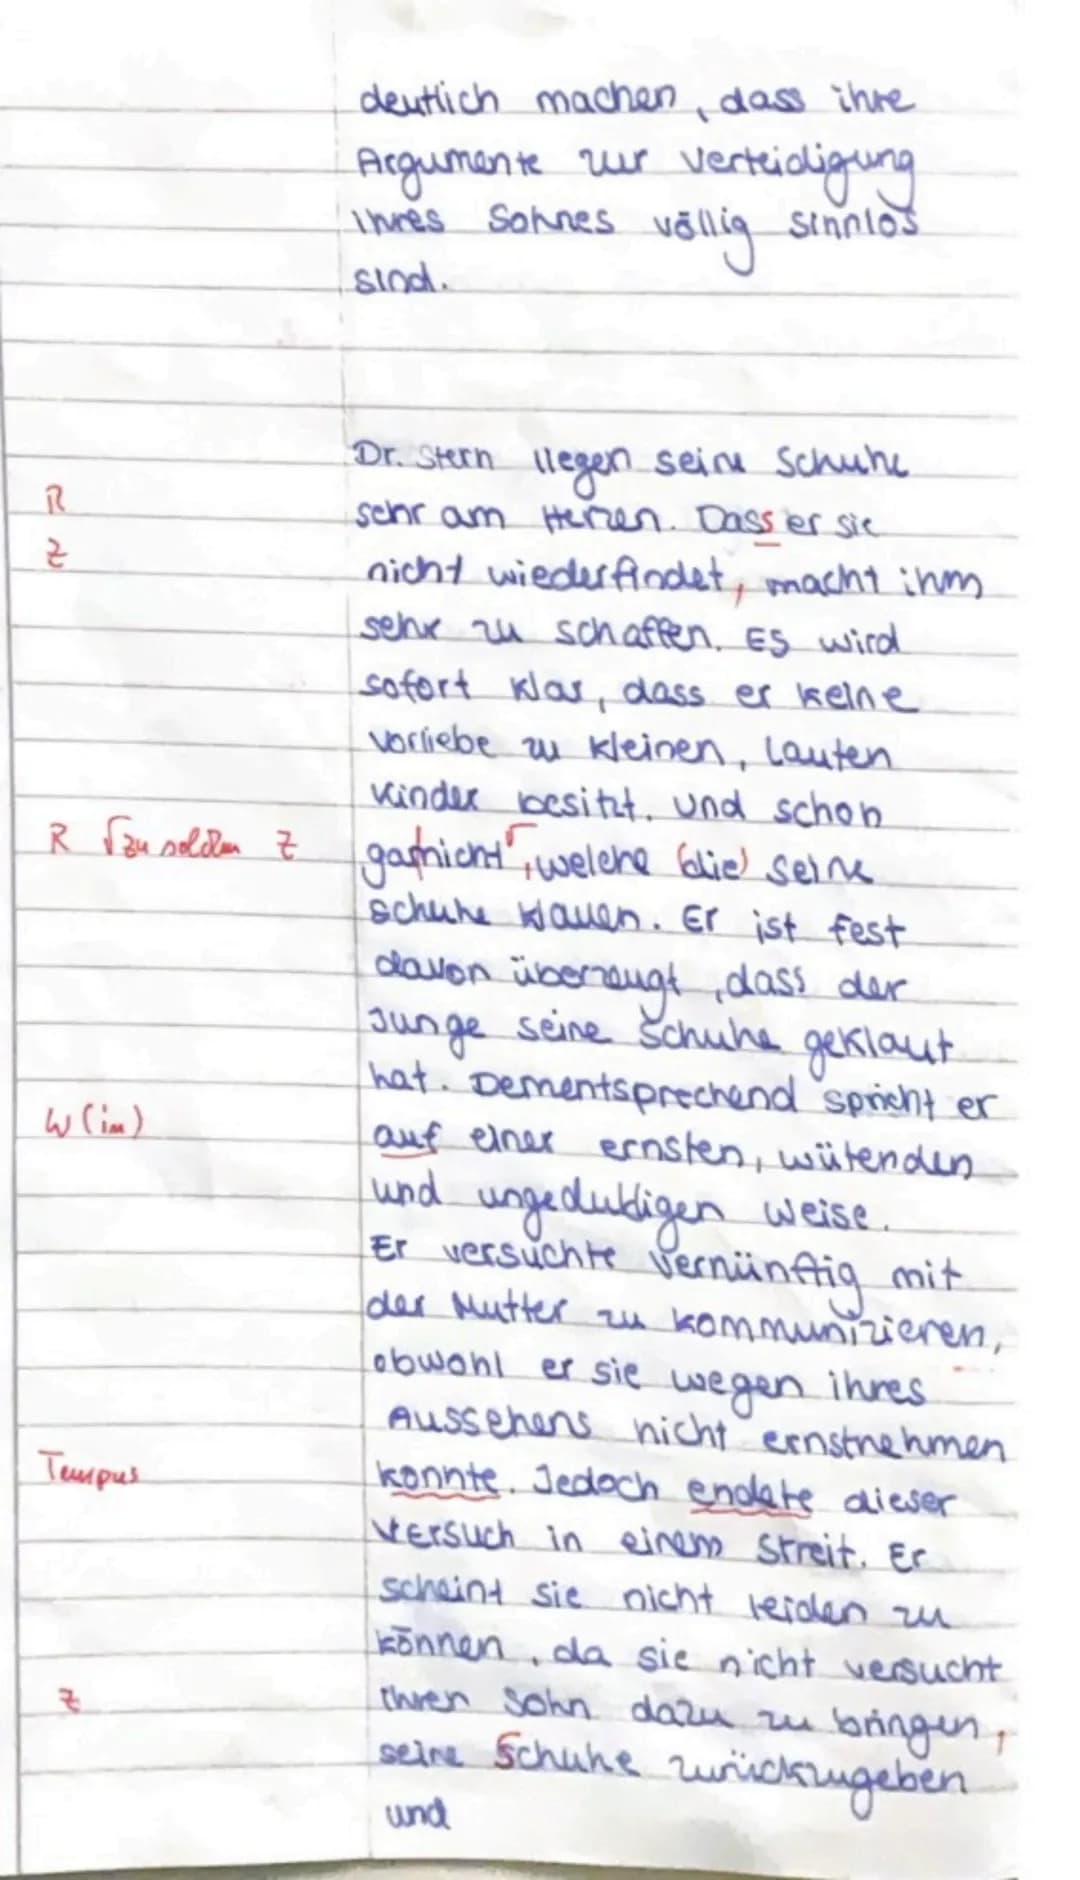 deutlich machen, dass ihre
Argumente zur Verteidigung
ihres Sohnes völlig sinnlos
sind.
Dr. Stern liegen seine Schuhe
R sehr am Herzen. Dass er sie
Z nicht wiederfindet, macht ihm
sehr zu schaffen. Es wird
sofort klar, dass er keine
Vorliebe zu kleinen, lauten
Kinder besitzt. Und schon
R √zu solchen Z garnicht√, welche (die) seine
Schuhe klauen. Er ist fest
davon überzeugt, dass der
Junge seine Schuhe geklaut
hat. Dementsprechend spricht er
W (in) auf einer ernsten, wütenden
und ungeduldigen Weise.
Er versuchte vernünftig mit
der Mutter zu kommunizieren,
obwohl er sie wegen ihres
Aussehens nicht ernstnehmen
Tempus konnte. Jedoch endete dieser
Versuch in einem Streit. Er
scheint sie nicht leiden zu
können, da sie nicht versucht
Z ihren Sohn dazu zu bringen,
seine Schuhe zurückzugeben
und